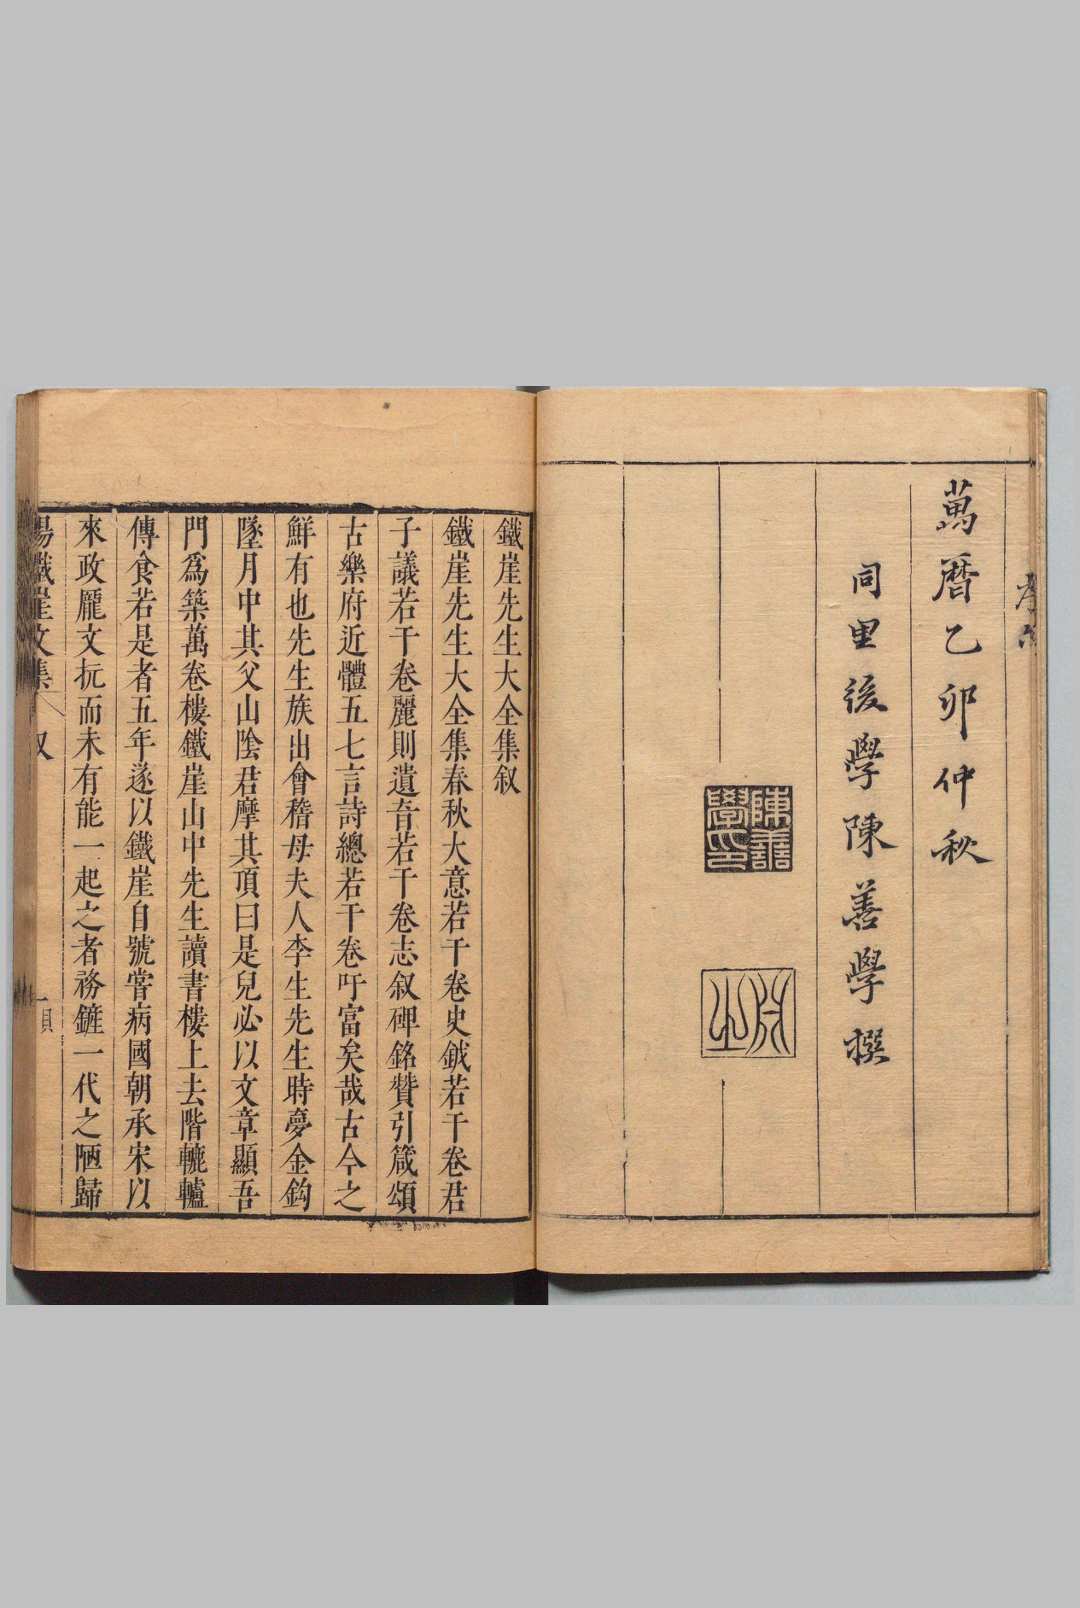 萬曆乙卯仲秋
同里後學陳善學撰
陳善學印
鐵崖先生大全集叙
鐵崖先生大全集春秋大意若干卷史鉞若干卷君
子議若干卷麗則遺音若干卷志叙碑銘贊引箴頌
古樂府近體五七言詩總若干卷吁富矣哉古今之
鮮有也先生族出會稽母夫人李生先生時夢金鈎
墜月中其父山陰君摩其頂曰是兒必以文章顯吾
門爲築萬卷樓鐵崖山中先生讀書樓上去階轆轤
傳食若是者五年遂以鐵崖自號嘗病國朝承宋以
來政龎文抏而未有能一起之者務鏟一代之陋歸
楊鐵崖文集 叙